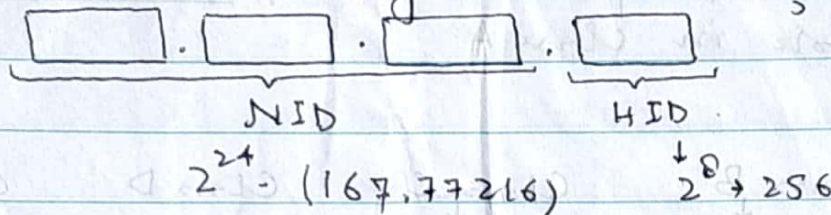 . . .
NID HID
2^24 - (167,77216) ↓ 2^8 → 256